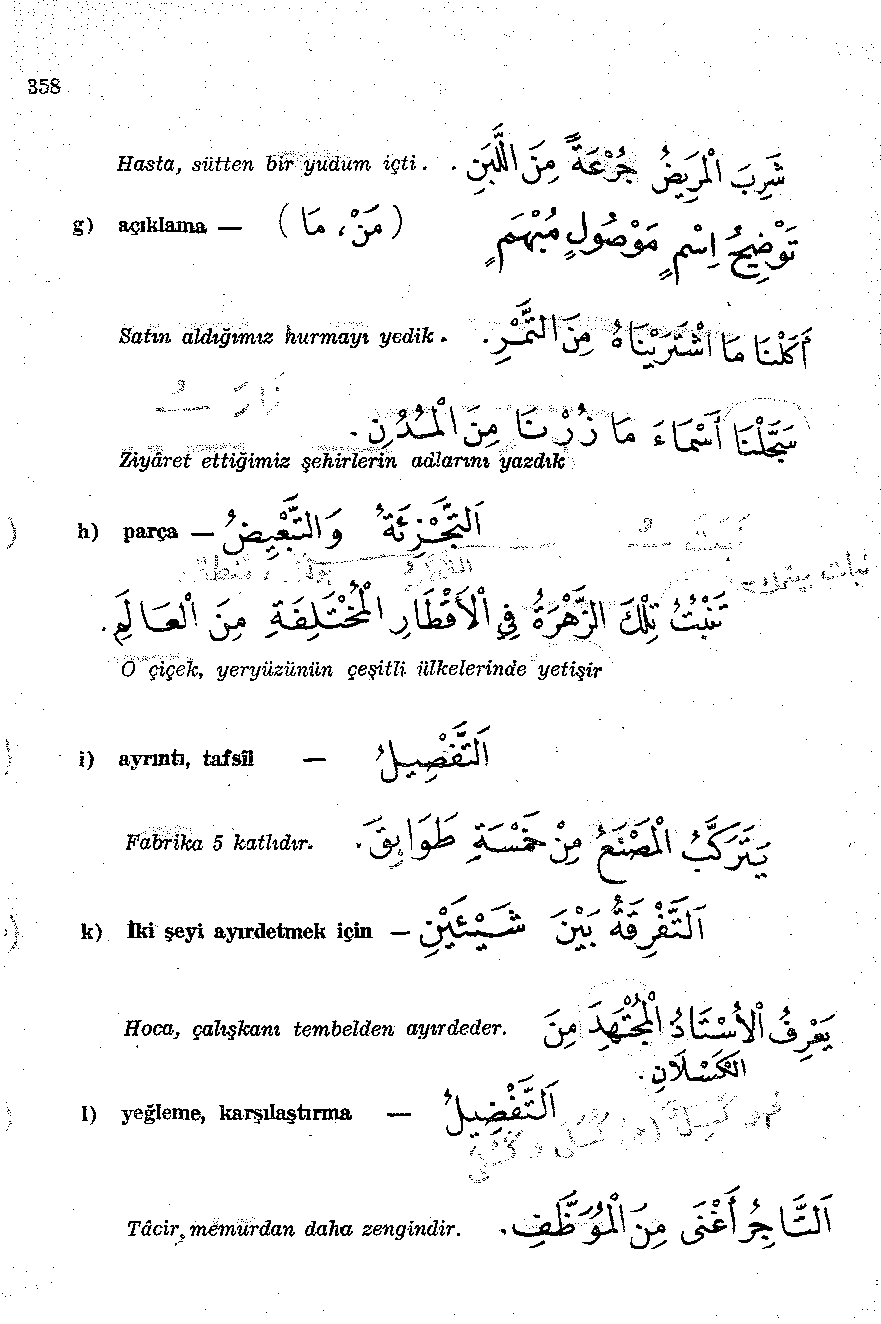 358
Hasta, sütten bir yudum içti. شَرِبَ الْمَرِيضُ جُرْعَةً مِنَ اللَّبَنِ.
g) açıklama — (مَنْ، مَا) تَوْضِيحُ اِسْمٍ مَوْصُولٍ مُبْهَمٍ
Satın aldığımız hurmayı yedik. أَكَلْنَا مَا اشْتَرَيْنَاهُ مِنَ التَّمْرِ.
سَجَّلْنَا أَسْمَاءَ مَا زُرْنَا مِنَ الْمُدُنِ.
Ziyâret ettiğimiz şehirlerin adlarını yazdık
h) parça — اَلتَّجْزِئَةُ وَالتَّبْعِيضُ
تَنْبُتُ تِلْكَ الزَّهْرَةُ فِي الْأَقْطَارِ الْمُخْتَلِفَةِ مِنَ الْعَالَمِ.
O çiçek, yeryüzünün çeşitli ülkelerinde yetişir
i) ayrıntı, tafsîl — اَلتَّفْصِيلُ
Fabrika 5 katlıdır. يَتَرَكَّبُ الْمَصْنَعُ مِنْ خَمْسَةِ طَوَابِقَ.
k) İki şeyi ayırdetmek için — اَلتَّفْرِقَةُ بَيْنَ شَيْئَيْنِ
Hoca, çalışkanı tembelden ayırdeder. يَعْرِفُ الْأُسْتَاذُ الْمُجْتَهِدَ مِنَ
الْكَسْلَانِ.
l) yeğleme, karşılaştırma — اَلتَّفْضِيلُ
Tâcir, memurdan daha zengindir. اَلتَّاجِرُ أَغْنَى مِنَ الْمُوَظَّفِ.